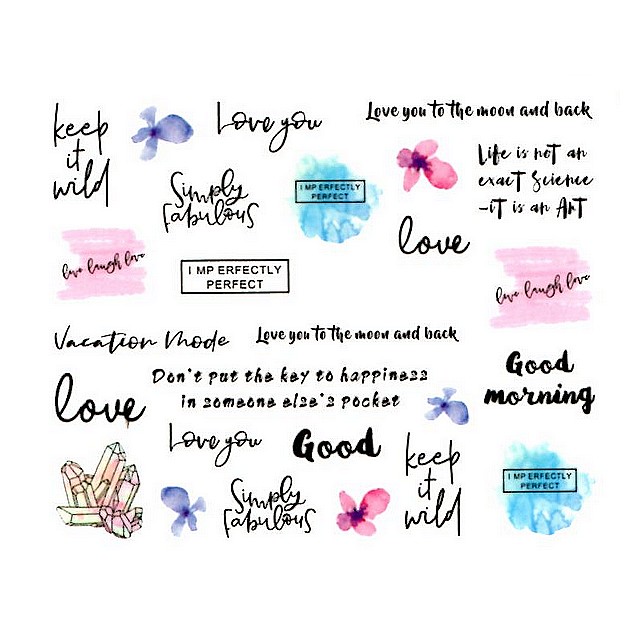 keep
it
wild
Love you
Love you to the moon and back
Simply
fabulous
I MP ERFECTLY
PERFECT
Life is not an
exact Science
-it is an Art
love
live laugh love
I MP ERFECTLY
PERFECT
live laugh love
Vacation Mode
Love you to the moon and back
Good
morning
love
Don't put the key to happiness
in someone else's pocket
Love you
Good
keep
it
wild
Simply
fabulous
I MP ERFECTLY
PERFECT